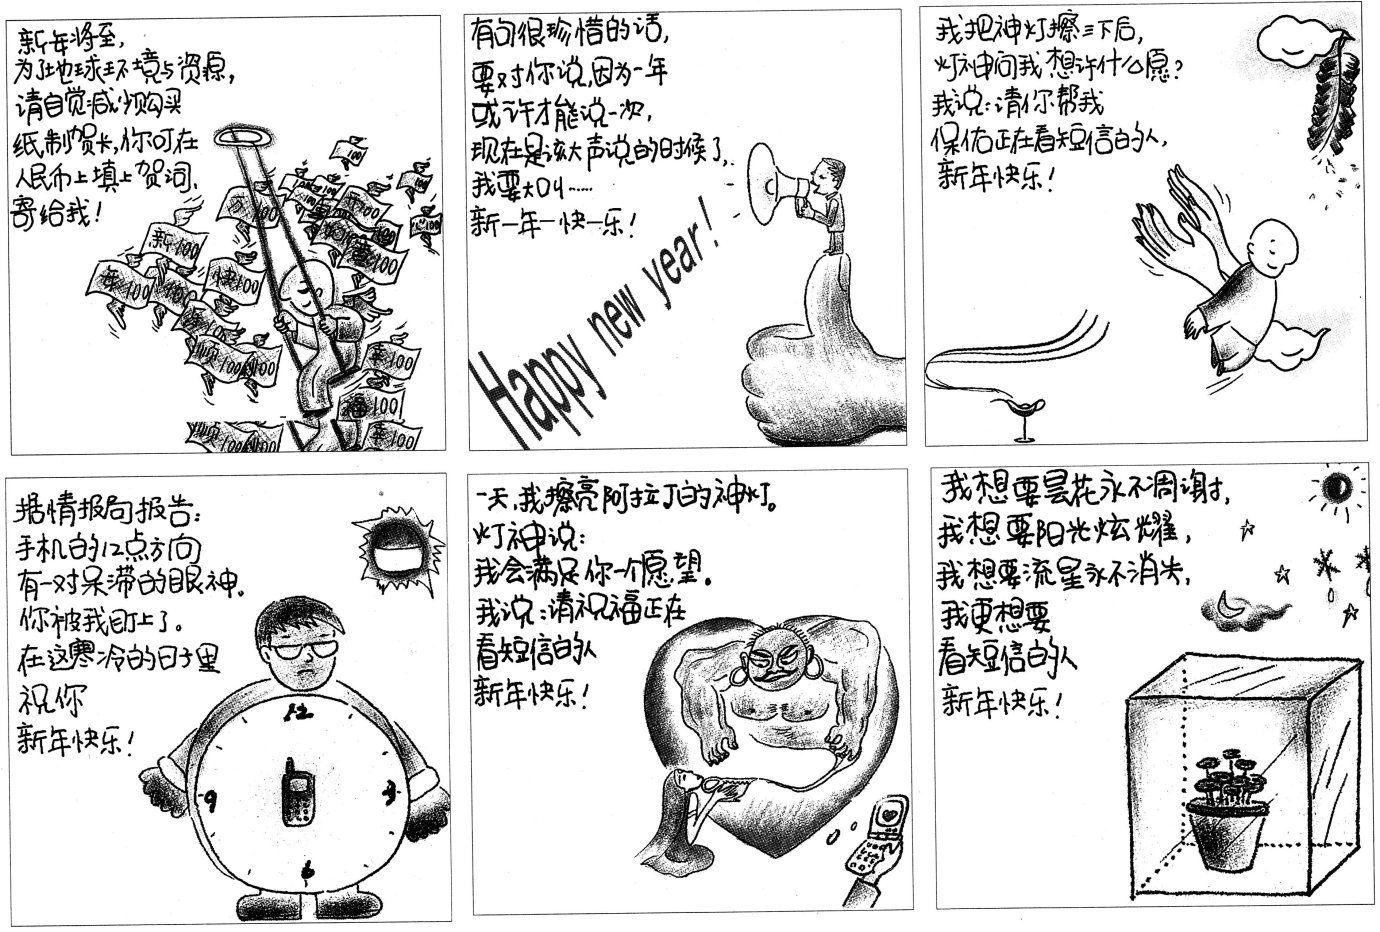 新年将至,
为了地球环境与资源,
请自觉减少购买
纸制贺卡,你可在
人民币上填上贺词,
寄给我!
新100
年100
快100
福100
有句很珍惜的话,
要对你说,因为一年
或许才能说一次,
现在是该大声说的时候了,
我要大叫……
新一年一快一乐!
Happy new year!
我把神灯擦三下后,
灯神问我想许什么愿?
我说:请你帮我
保佑正在看短信的人,
新年快乐!
据情报局报告:
手机的12点方向
有一对呆滞的眼神。
你被我盯上了。
在这寒冷的日子里
祝你
新年快乐!
12
9
3
6
一天,我擦亮阿拉丁的神灯。
灯神说:
我会满足你一个愿望。
我说:请祝福正在
看短信的人
新年快乐!
我想要昙花永不凋谢,
我想要阳光炫耀,
我想要流星永不消失,
我更想要
看短信的人
新年快乐!